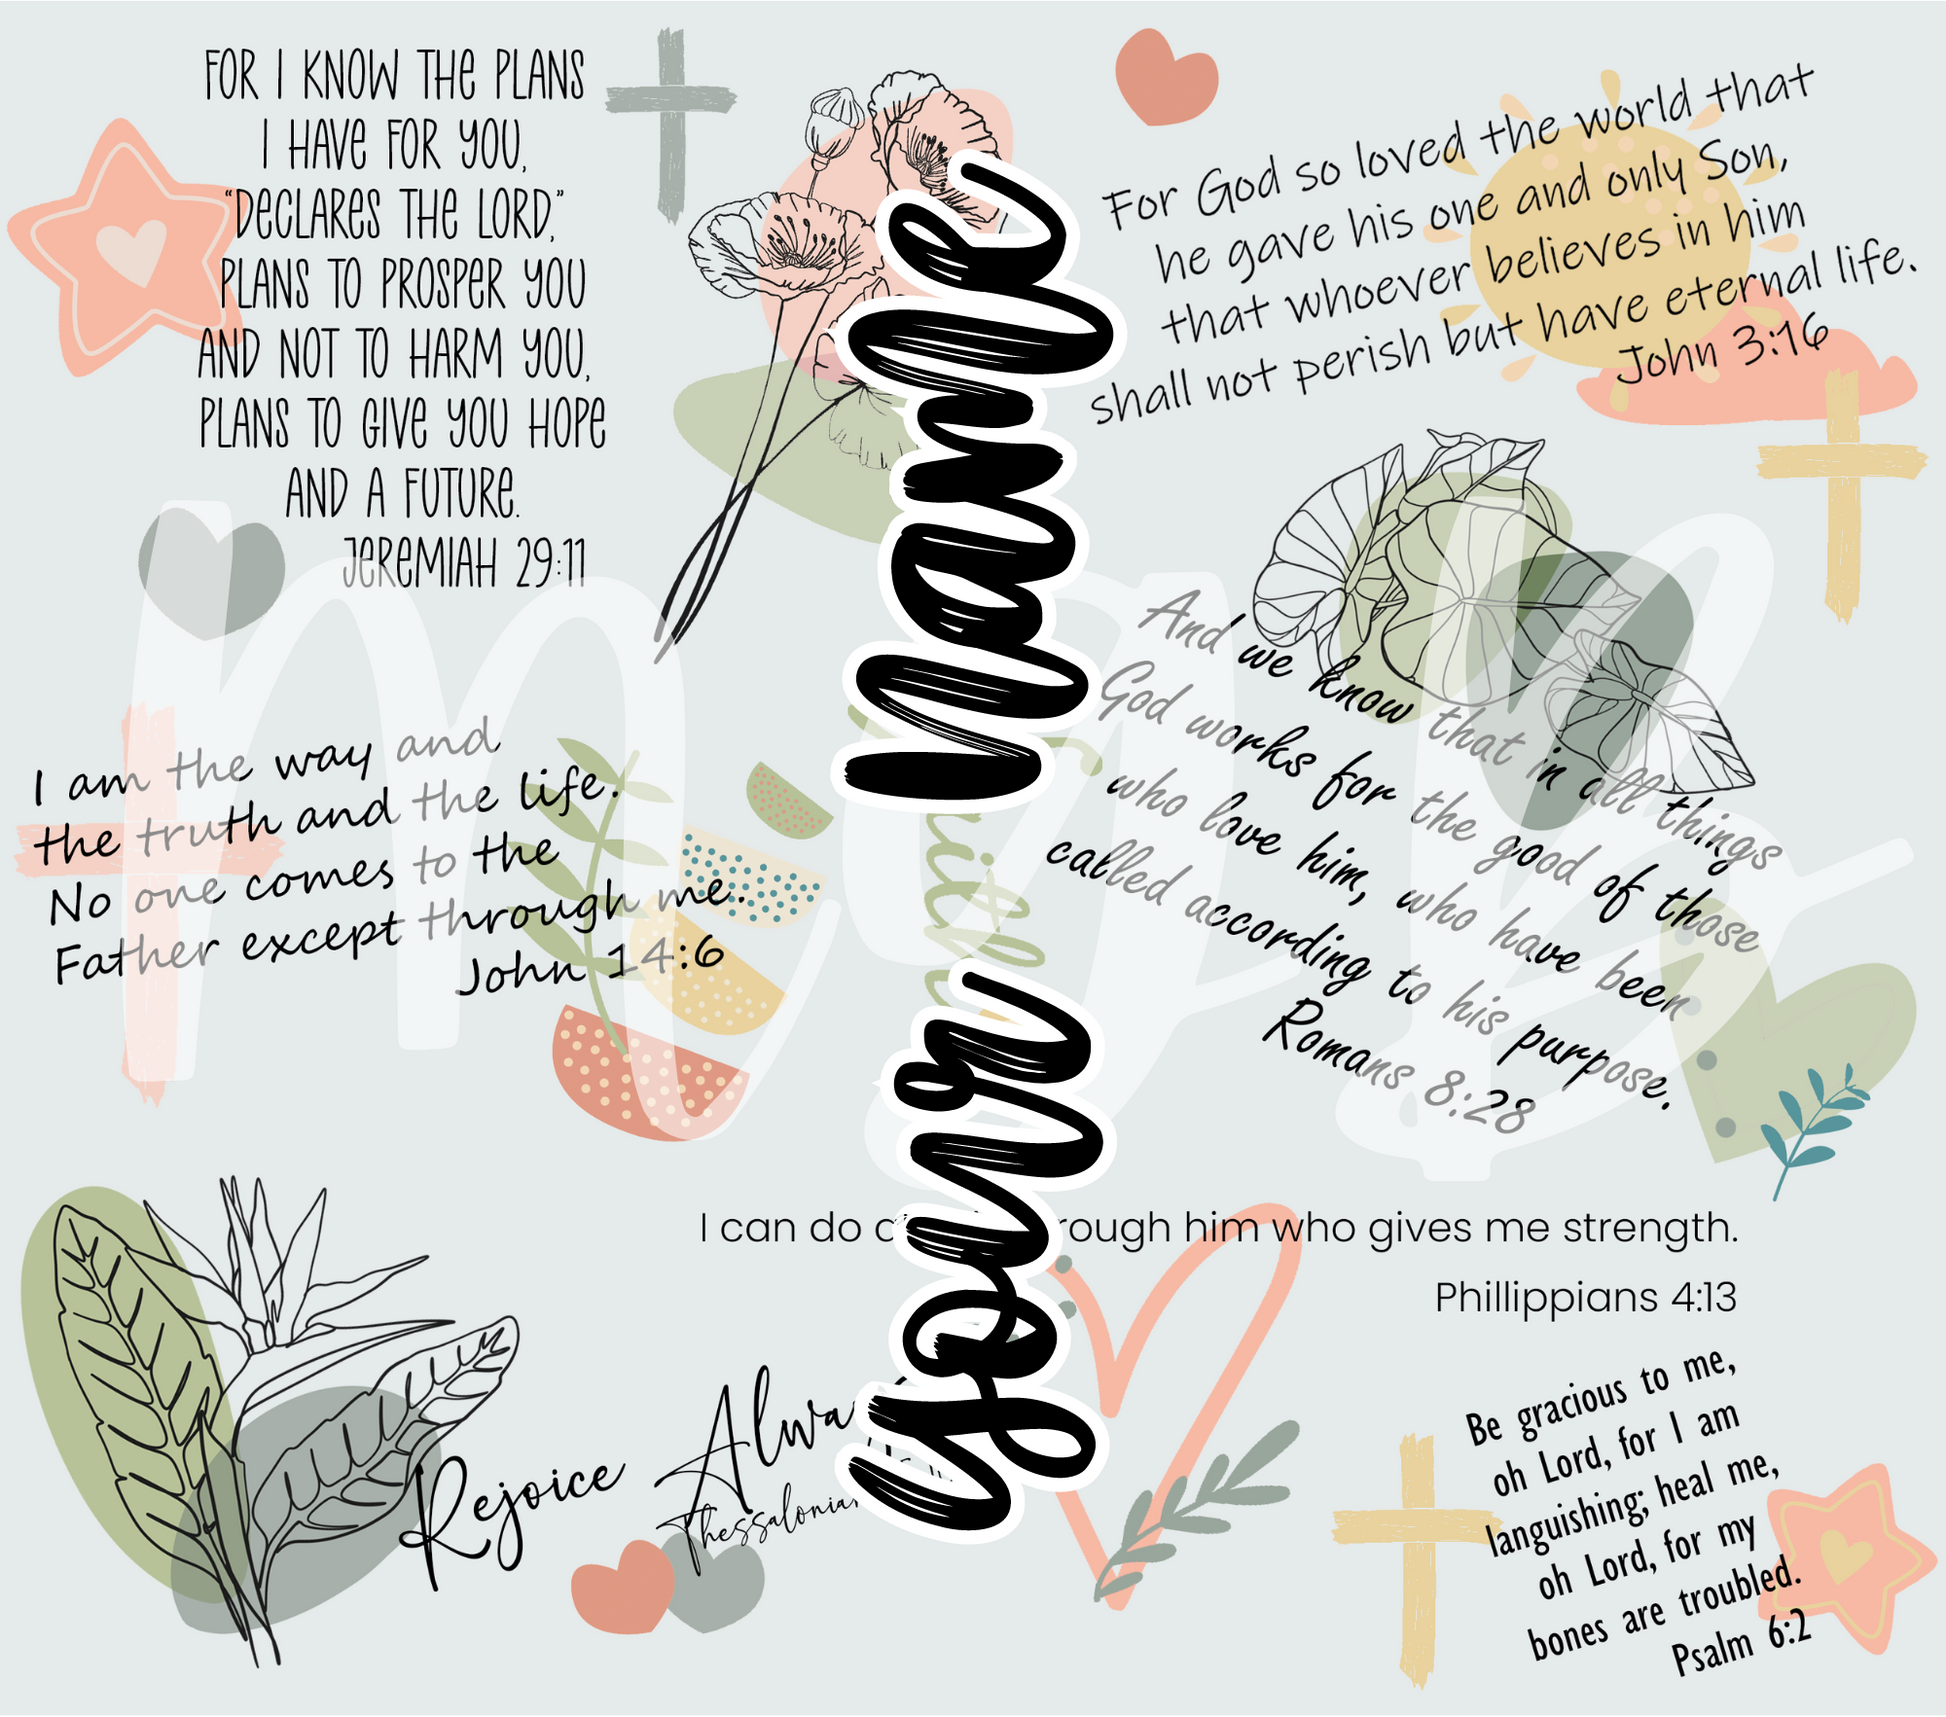 FOR I KNOW THE PLANS
I HAVE FOR YOU,
"DECLARES THE LORD,"
PLANS TO PROSPER YOU
AND NOT TO HARM YOU,
PLANS TO GIVE YOU HOPE
AND A FUTURE.
JEREMIAH 29:11
For God so loved the world that
he gave his one and only Son,
that whoever believes in him
shall not perish but have eternal life.
John 3:16
your Name
I am the way and
the truth and the life.
No one comes to the
Father except through me.
John 14:6
And we know that in all things
God works for the good of those
who love him, who have been
called according to his purpose.
Romans 8:28
I can do rough him who gives me strength.
Phillippians 4:13
Rejoice Alwa
Thessalonia
Be gracious to me,
oh Lord, for I am
languishing; heal me,
oh Lord, for my
bones are troubled.
Psalm 6:2